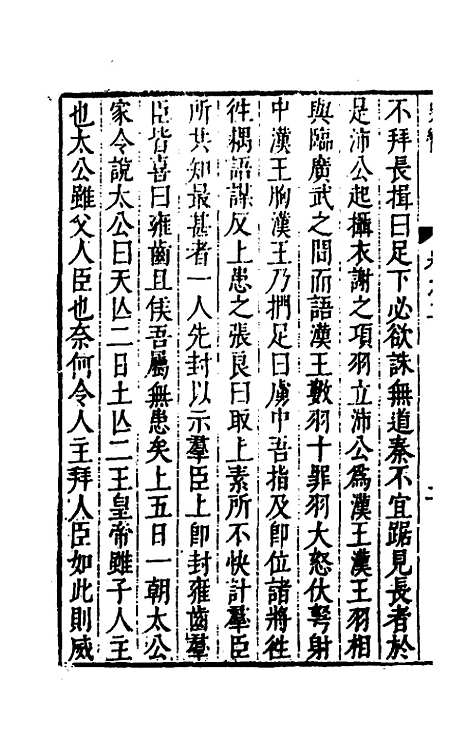 不拜長揖曰足下必欲誅無道秦不宜踞見長者於
是沛公起攝衣謝之項羽立沛公爲漢王漢王羽相
與臨廣武之間而語漢王數羽十罪羽大怒伏弩射
中漢王胸漢王乃捫足曰虜中吾指及卽位諸將徃
徃耦語謀反上患之張良曰取上素所不快計羣臣
所共知最甚者一人先封以示羣臣上卽封雍齒羣
臣皆喜曰雍齒且侯吾屬無患矣上五日一朝太公
家令說太公曰天亾二日土亾二王皇帝雖子人主
也太公雖父人臣也奈何令人主拜人臣如此則威